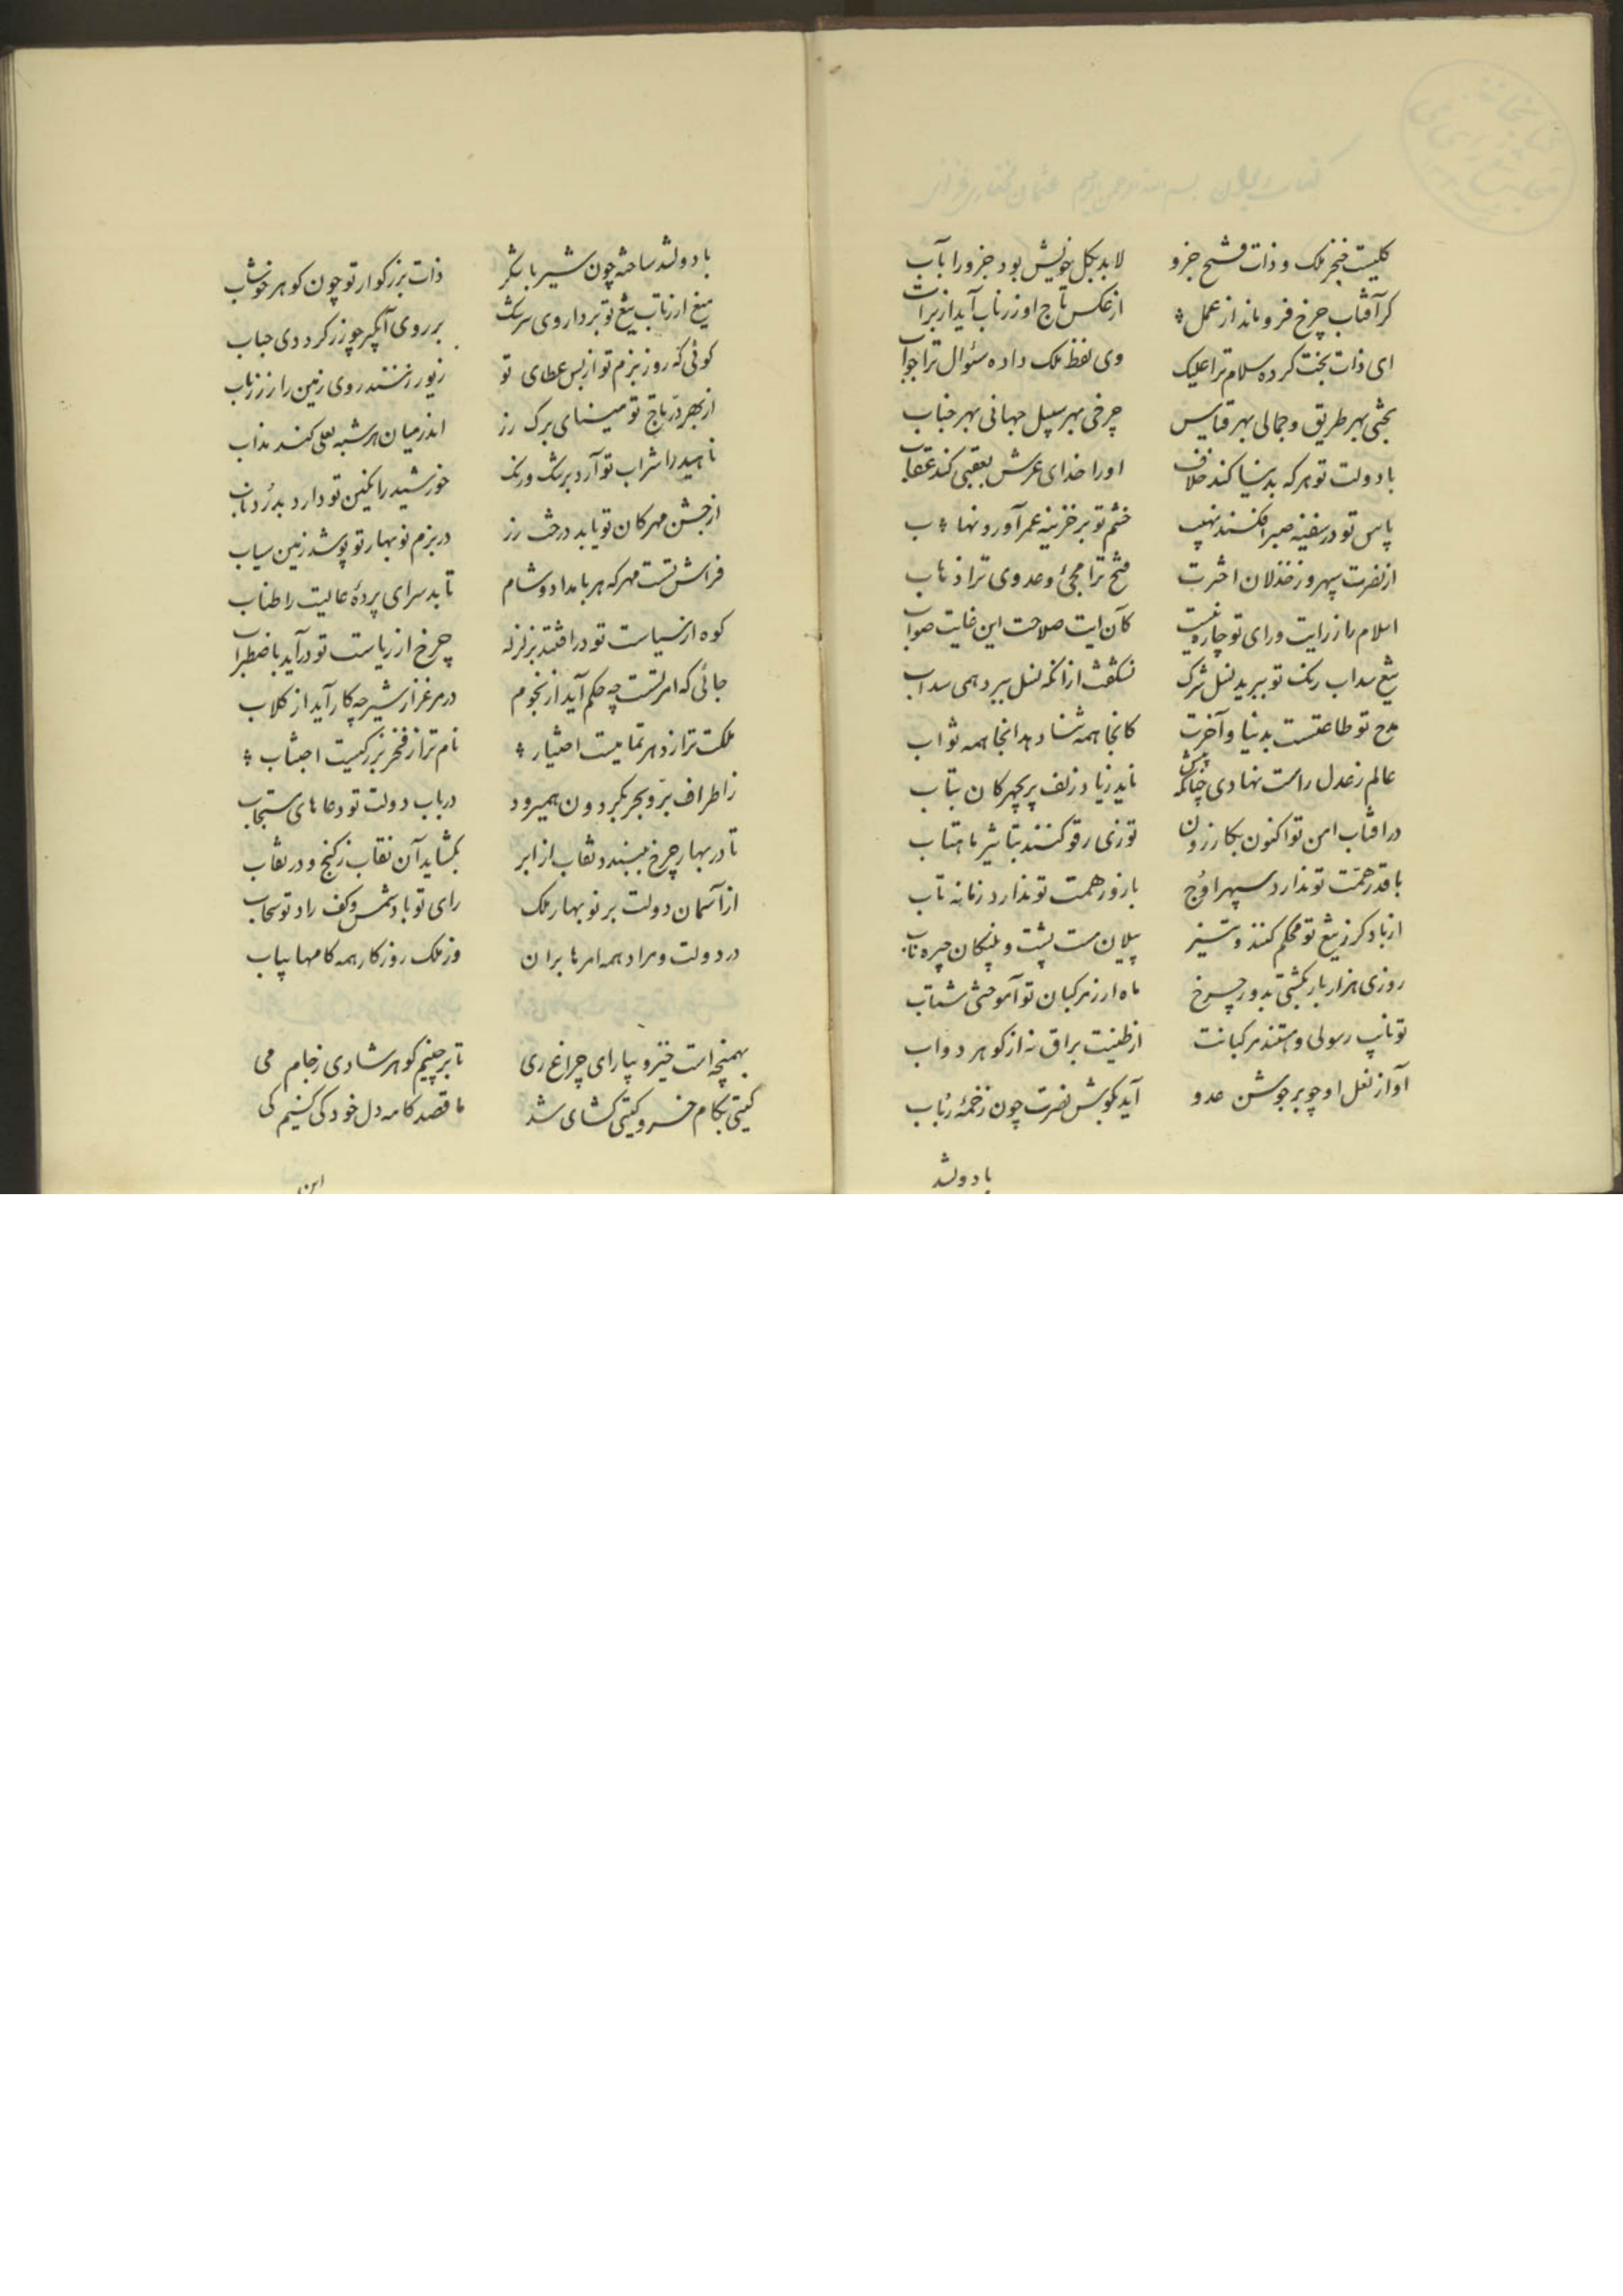 کلیست فخر ملک و ذات فتح جزو لابد بکل خویش بود جزو را بآب
کر آفتاب چرخ فرو ماند از عمل از عکس تاج او زر ناب آید از تراب
ای ذات بخت کرده سلام ترا علیک وی لفظ ملک داده سئوال ترا جواب
بختی بهر طریق و جمالی بهر قیاس چرخی بهر سبیل جهانی بهر خباب
با دولت تو هر که بدنیا کند خلاف او را خدای عرش بعقبی کند عقاب
پاس تو در سفینه صبر افکند نهیب خشم تو بر خزینه عمر آورد نهاب
از نصرت سپهر و ز خذلان اخترت فتح ترا مجئ و عدوی ترا ذهاب
اسلام را ز رایت و رای تو چاره نیست کآن آیت صلاحت این غایت صواب
تیغ سداب رنک تو ببرید نسل شرک نشکفت ازانکه نسل ببرد همی سداب
مدح تو طاعتست بدنیا و آخرت کانجا همه ثنا دهد انجا همه ثواب
عالم ز عدل راست نهادی چنانکه پیش ناید زیاد زلف پریچهرکان بتاب
در افتاب امن تو اکنون بکازرون توزی رفو کنند بتاثیر ماهتاب
با قدر همت تو ندارد سپهر اوج با زور همت تو ندارد زمانه تاب
از باد کرز تیغ تو محکم کنند و تیز پیلان مست پشت و پلنکان چیره ناب
روزی هزار بار بکشتی بدور چرخ ماه ار ز مرکبان تو آموختی شتاب
تو نایب رسولی و هستند مرکبانت از طینت براق نه از کوهر دواب
آواز نعل او چو بر جوشن عدو آید بکوش نصرت چون زخمهٔ رباب
با دولتد
با دولتد ساخته چون شیر با شکر ذات بزرکوار تو چون کوهر خوشاب
میغ ار ز تاب تیغ تو بردارد وی سرشک بر روی آبکیر چو زر کردد دی حباب
کوئی که روز بزم تو از بس عطای تو زیور زنند روی زمین را ز زر ناب
از بهر در تاج تو مینای برک رز اندر میان هر شبه لعلی کند مذاب
ناهید را شراب تو آرد برشک و رنک خورشید را نکین تو دارد بدرد و تاب
از جشن مهرکان تو یابد درخت زر در بزم نوبهار تو پوشد زمین سیاب
فراش تست مهر که هر بامداد و شام تابد سرای پردهٔ عالیت را طناب
کوه از سیاست تو در افتد بزلزله چرخ از ریاست تو درآید باضطراب
جائی که امر تست چه حکم آید از نجوم در مرغزار شیر چه کار آید از کلاب
ملکت ترا ز دهر تمامیست اختیار نام ترا ز فخر بزرکیست اجتناب
ز اطراف بر و بحر بکردون همیرود در باب دولت تو دعاهای مستجاب
تا در بهار چرخ ببندد نقاب از ابر بکشاید آن نقاب ز کنج و در نقاب
از آسمان دولت بر نوبهار ملک رای تو باد شمس و کف راد تو سحاب
در دولت و مراد همه امرها بران وز ملک روزکار همه کامها بیاب
بهمنجه است خیز و بیار ای چراغ ری تا برچنیم کوهر شادی ز جام می
کیتی بکام خسرو کیتی کشای شد ما قصد کامه دل خود کی کنیم کی
این